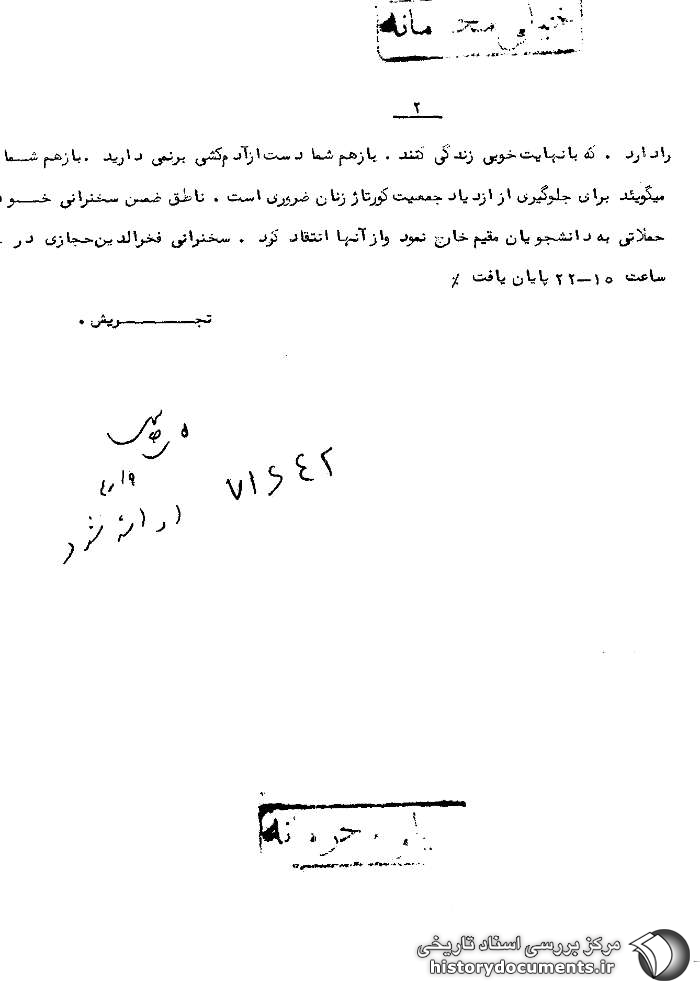 خیلی محرمانه
۲
رادارد . که بانهایت خوبی زندگی کنند . بازهم شما دست ازآدم‌کشی برنمی دارید . بازهم شما
میگوئید برای جلوگیری از ازدیاد جمعیت کورتاژ زنان ضروری است . ناطق ضمن سخنرانی خود
حملاتی به دانشجویان مقیم خارج نمود وازآنها انتقاد کرد . سخنرانی فخرالدین‌حجازی در
ساعت ۱۵–۲۲ پایان یافت ٪
تجریش .
ارائه نشد
خیلی محرمانه
مرکز بررسی اسناد تاریخی
historydocuments.ir